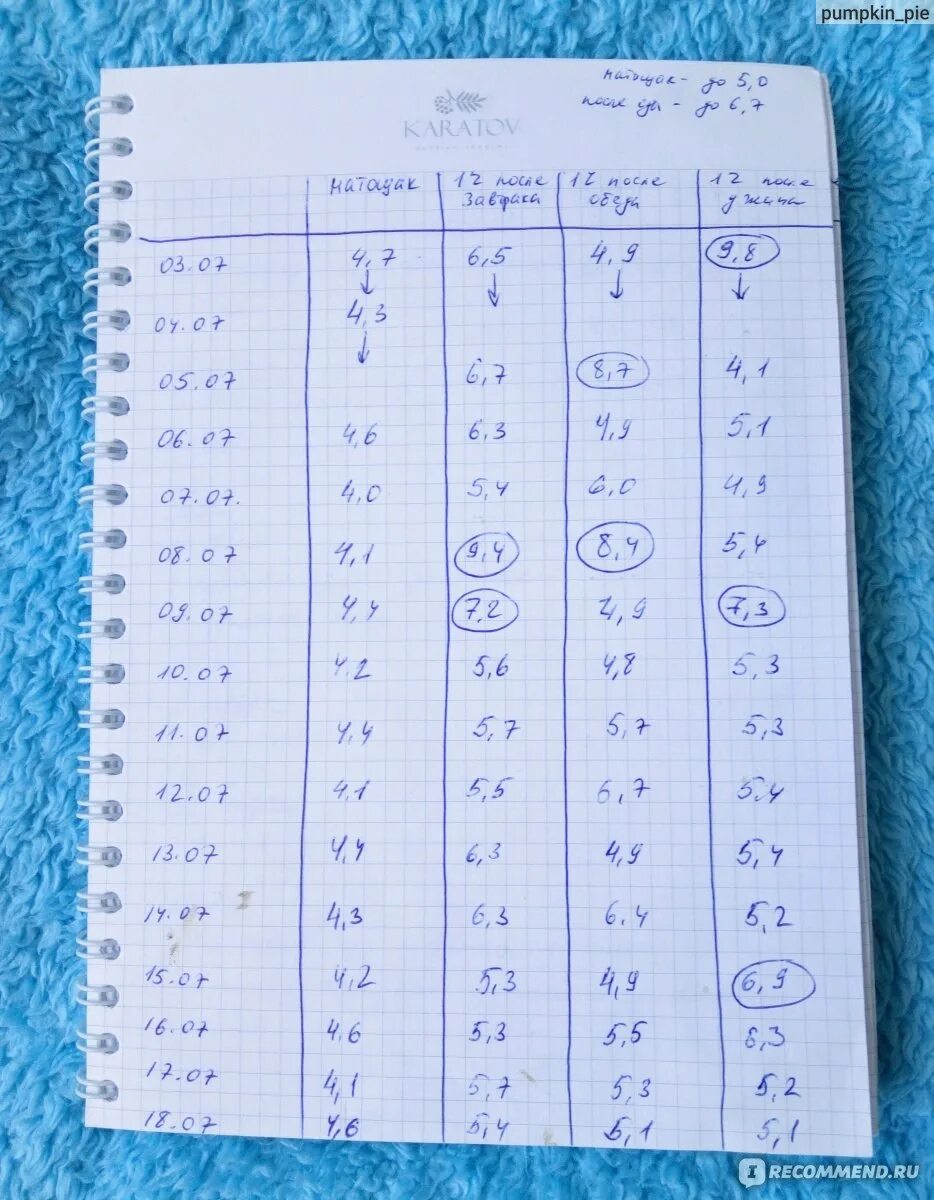 pumpkin_pie
натощак - до 5,0
после еды - до 6,7
KARATOV
натощак 1ч после завтрака 1ч после обеда 1ч после ужина
03.07 4,7 6,5 4,9 9,8
04.07 4,3
05.07 6,7 8,7 4,1
06.07 4,6 6,3 4,9 5,1
07.07. 4,0 5,4 6,0 4,9
08.07 4,1 9,4 8,4 5,4
09.07 4,4 7,2 4,9 7,3
10.07 4,2 5,6 4,8 5,3
11.07 4,4 5,7 5,7 5,3
12.07 4,1 5,5 6,7 5,4
13.07 4,4 6,3 4,9 5,4
14.07 4,3 6,3 6.4 5,2
15.07 4,2 5,3 4,9 6,9
16.07 4,6 5,3 5,5 6,3
17.07 4,1 5,7 5,3 5,2
18.07 4,6 5,4 5,1 5,1
IRECOMMEND.RU